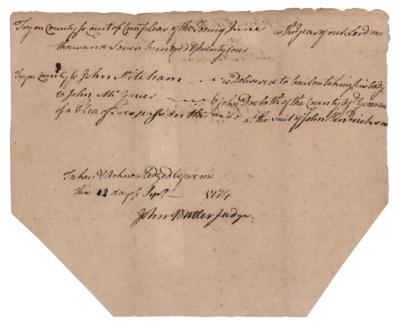 Tryon County ss Court of Com[mon] pleas of the Term of June in the Year of our Lord one
thousand Seven hundred & Seventy four
Tryon County ss John Mitcham is Delivered to bail on taking his body
to John & John Doe both of the County of Yeoman
of a Plea of Trespass on the at the Suit of John
Taken & Acknowledged before me
this 12 day of Sepr. 1774
John Butler Judge